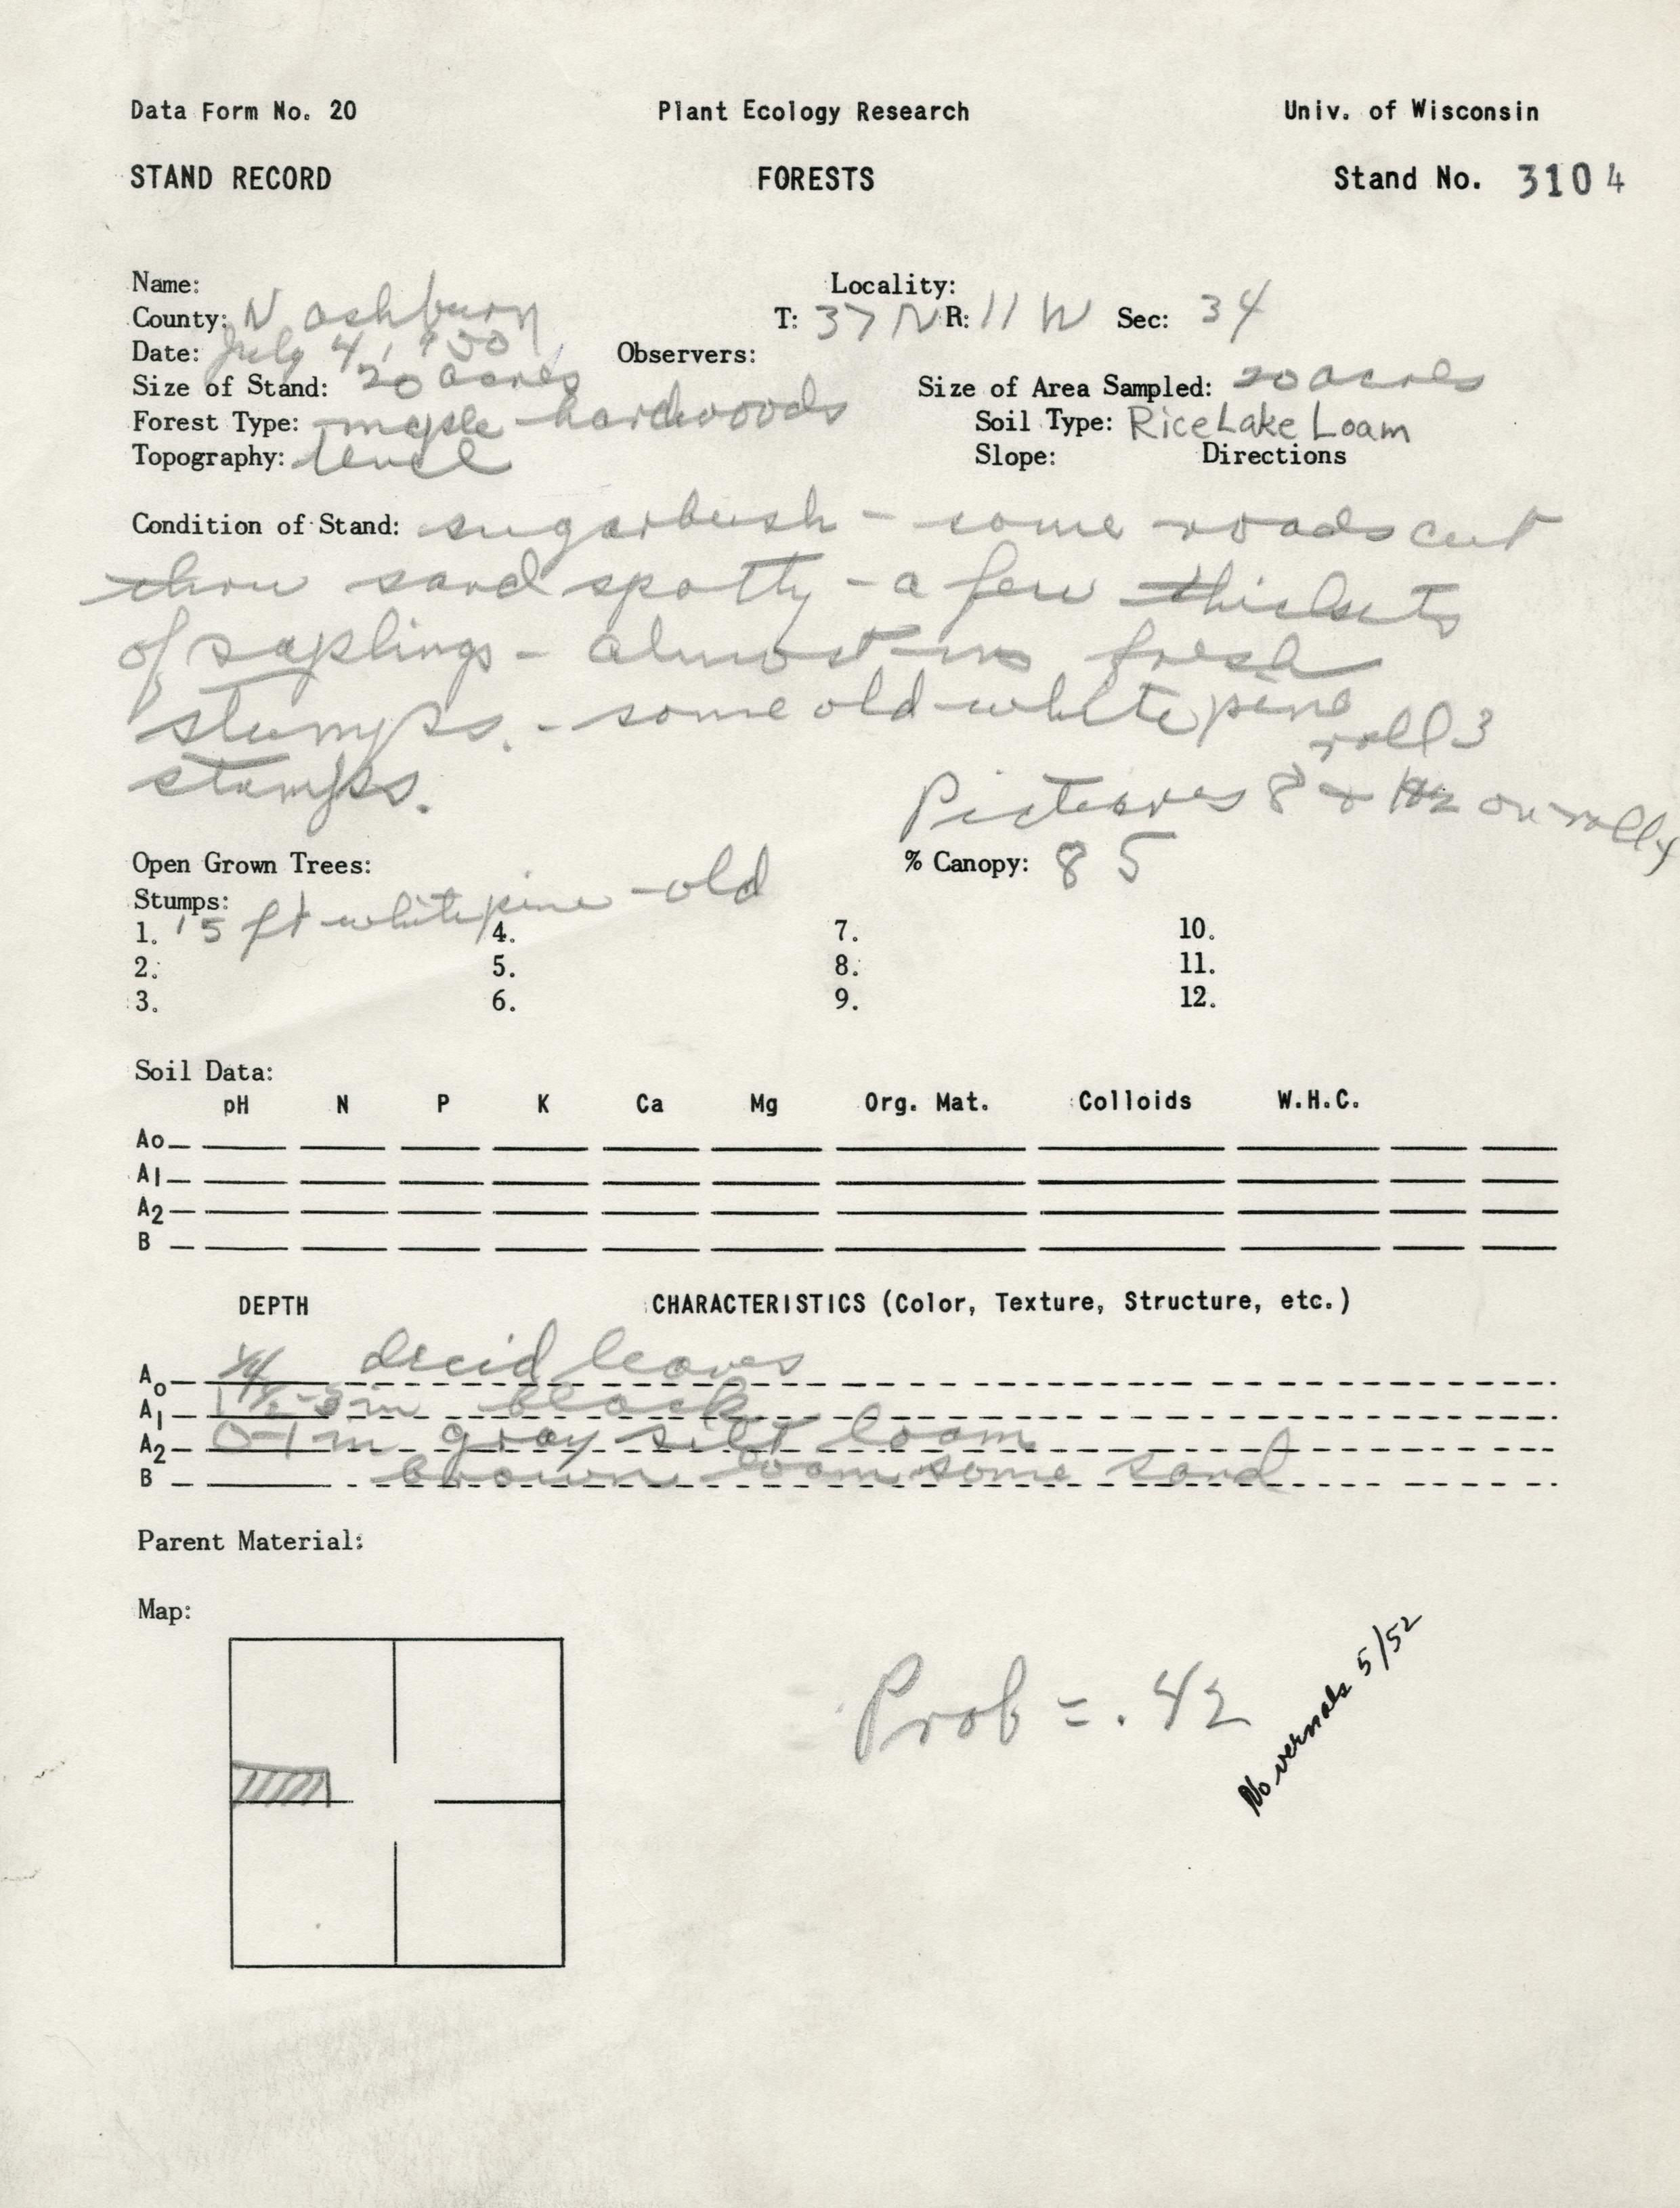 Data Form No. 20 Plant Ecology Research Univ. of Wisconsin
STAND RECORD FORESTS Stand No. 3104
Name: Locality:
County: Washburn T: 37 N R: 11 W Sec: 34
Date: July 4, 1950 Observers:
Size of Stand: 20 acres Size of Area Sampled: 20 acres
Forest Type: maple hardwoods Soil Type: Rice Lake Loam
Topography: level Slope: Directions
Condition of Stand: sugarbush - some roads cut
thru sand spotty - a few thickets
of saplings - almost no fresh
stumps. - some old white pine
roll 3
stumps.
Pictures 8 & on roll 4
Open Grown Trees: % Canopy: 85
Stumps:
1. 15 ft white pine - old 4. 7. 10.
2. 5. 8. 11.
3. 6. 9. 12.
Soil Data:
pH N P K Ca Mg Org. Mat. Colloids W.H.C.
Ao
A1
A2
B
DEPTH CHARACTERISTICS (Color, Texture, Structure, etc.)
Ao 1/4 decid leaves
A1 1 1/2-3 in black
A2 0-1 in gray silt loam
B brown loam some sand
Parent Material:
Map:
Prob = .42
No vernals 5/52